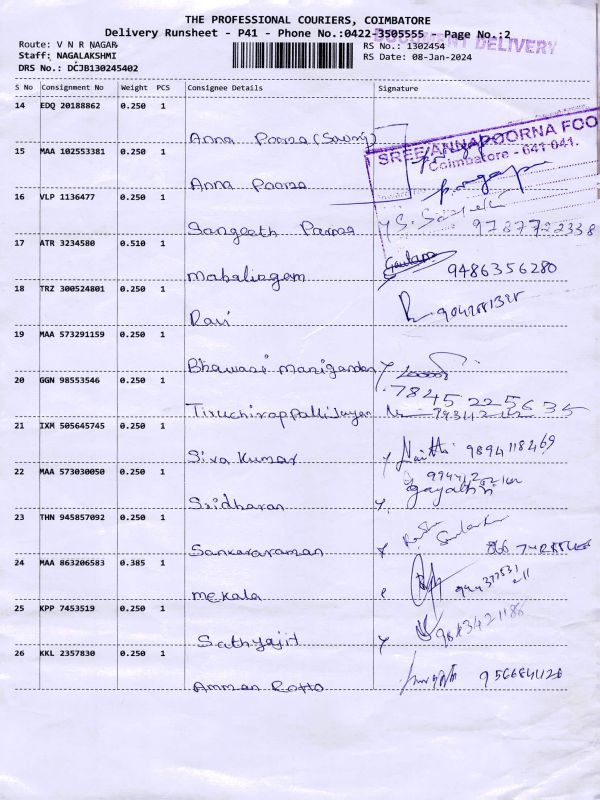 THE PROFESSIONAL COURIERS, COIMBATORE
Delivery Runsheet - P41 - Phone No.:0422-3505555 - Page No.:2
DOCUMENT DELIVERY
Route: V N R NAGAR
Staff: NAGALAKSHMI
DRS No.: DCJB130245402
RS No.: 1302454
RS Date: 08-Jan-2024
S No Consignment No Weight PCS Consignee Details Signature
14 EDQ 20188862 0.250 1
Anna Poorna
SREE ANNAPOORNA FOO
Coimbatore - 641 041.
15 MAA 102553381 0.250 1
Anna Poorna
16 VLP 1136477 0.250 1
Sangeeth 9787722338
17 ATR 3234580 0.510 1
Mahalingam 9486356280
18 TRZ 300524801 0.250 1
Ravi
19 MAA 573291159 0.250 1
Bhawani Manigandan
20 GGN 98553546 0.250 1
7845225635
21 IXM 505645745 0.250 1
Siva Kumar 9894118469
22 MAA 573030050 0.250 1
Sridharan gayathri
23 THN 945857092 0.250 1
Sankararaman
24 MAA 863206583 0.385 1
mekala
25 KPP 7453519 0.250 1
Sathyajit 9843421186
26 KKL 2357830 0.250 1
Amman Rotto